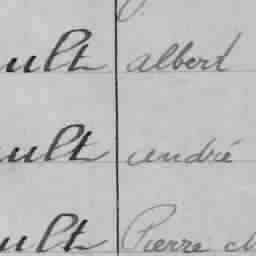 ult albert
ult andré
ult Pierre ch